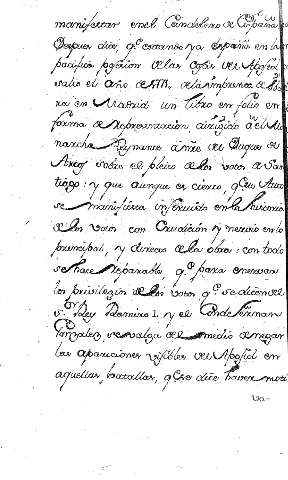 manifestar en el Candelero de España
Despues dice, qᵉ estando ya España en la
pacifica posesion de las cosas del Apostol
salio el año de en la imprenta de
ra en Madrid un libro en folio en
forma de Representacion, dirigido à el Mo
narcha Reynante à nre de Duque de
Arcos sobre el pleito de los votos de San
tiago: y que aunque es cierto, qᵉ su Autor
se manifiesta instruido en la historia
de los votos con erudicion y nervio en lo
principal, y de la obra: con todo
se hace reparable, qᵉ para enervar
los privilegios de los votos qᵉ se dicen del
Sᵒʳ Rey Ramiro I. y el Conde Fernan
Gonzalez, se valga del medio de negar
las apariciones visibles del Apostol en
aquellas batallas, qᵉ se dice haver moti
va-